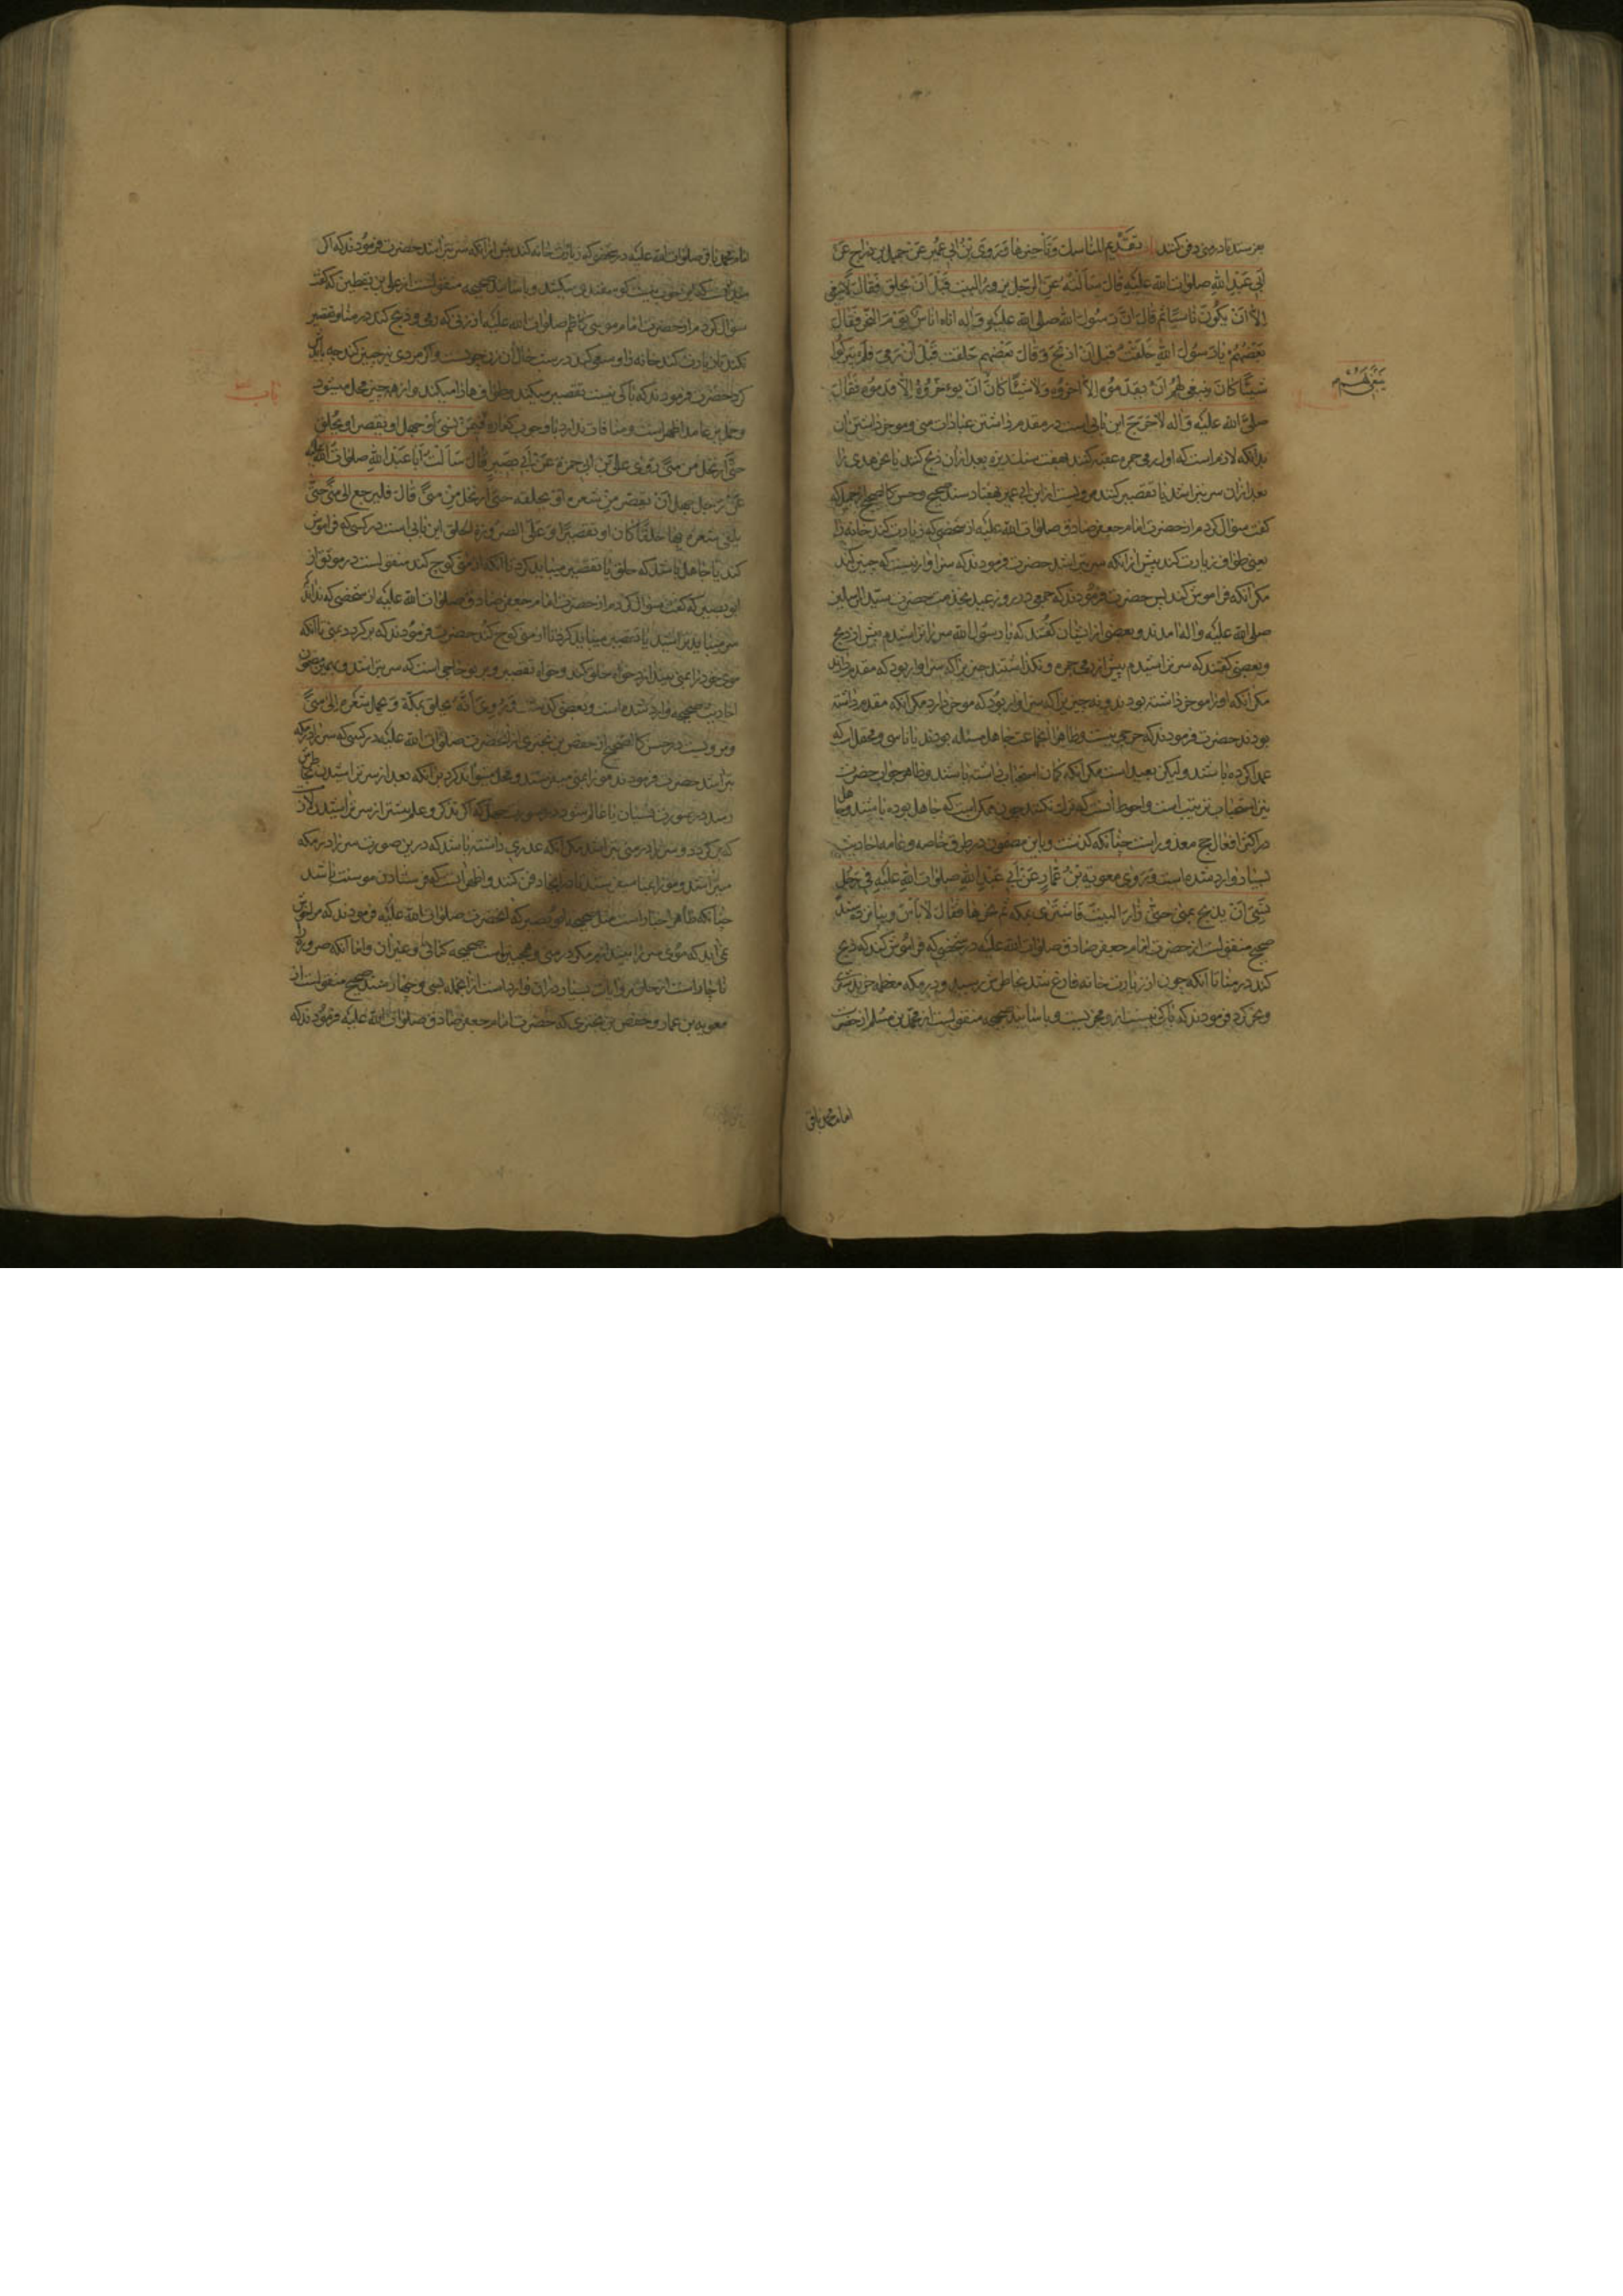 بفرستد تا در منی دفن کنند باب تقدیم المناسک وتأخیرها وَرَوَی ابْنُ اَبی عُمَیر عَنْ جمیل بن دراج عَنْ
اَبی عَبْدِ اللهِ صلوات الله علیه قال سَاَلْتُهُ عَنِ الرَّجل یزور البیت قَبْلَ اَنْ یحلق فَقالَ لا ینبغی
اِلّا اَنْ یکُونَ ناسیًا ثم قال اِنَّ رَسُولَ الله صلی الله علیه وآله اتاه اناسٌ یَوْمَ النَّحر فقالَ
بَعْضُهُمْ یا رَسُولَ اللهِ حَلَقْتُ قبل اَنْ اذبَحَ وَقالَ بَعْضُهم حَلقت قَبْلَ اَنْ اَرْمی فَلَمْ یَتْرُکُوا
شیئًا کانَ ینبغی لَهُمْ اَنْ یقدّموُه اِلّا اخّروُه وَلا شَیئًا کانَ اَنْ یوءخّروُهُ اِلّا قدّموُه فَقالَ
ینبغی لهُم
صلی الله علیه وَآله لا حَرَجَ این بابی است در مقدم داشتن عبادات منی وموخر داشتن آن
بدانکه لازم است که اول رمی جمره عقبه کنند بهفت سنک ریزه بعد از ان ذبح کنند یا نحر هدی را
بعد از ان سر بتراشند یا تقصیر کنند مرویست از ابن ابی عمیر بهفتاد سند صحیح وحسن کالصحیح از جمیل که
کفت سؤال کردم از حضرت امام جعفر صادق صلوات الله علیه از شخصی که زیارت کند خانه را
یعنی طواف زیارت کند پیش از انکه سر بتراشد حضرت فرمودند که سزاوار نیست که چنین کند
مکر آنکه فراموش کند پس حضرت فرمودند که جمعی در روز عید بخدمت حضرت سید المرسلین
صلی الله علیه وآله آمدند وبعضی از ایشان کفتند که یا رسول الله سر تراشیدم پیش از ذبح
وبعضی کفتند که سر تراشیدم پیش از رمی جمره ونکذاشتند چیزی را که سزاوار بود که مقدم دارند
مکر آنکه اورا موخر داشته بودند ونه چیزی را که سزاوار بود که موخر دارند مکر آنکه مقدم داشته
بودند حضرت فرمودند که حرجی نیست وظاهرا انجماعت جاهل مسئله بودند یا ناسی ومحتملست که
عمدا کرده باشند ولیکن بعید است مکر آنکه کمان استحباب داشته باشند وظاهر جواب حضرت
نیز استحباب ترتیب است واحوط آنست که ترک نکنند چون ممکن است که جاهل بوده باشند وجاهل
در اکثر افعال حج معذور است چنانکه کذشت وباین مضمون در طرق خاصه وعامه احادیث
بسیار وارد شده است وَرَوی معویة بْنُ عَمّارٍ عَنْ اَبی عَبْدِ اللهِ صلوات اللهِ عَلَیْهِ فی رَجُلٍ
نَسِیَ اَنْ یذبح بمنی حتّی زارَ البیتَ فَاشتری بمکة ثُمَّ نحرها فَقالَ لا بَأسَ وبسند
صحیح منقولست از حضرت امام جعفر صادق صلوات الله علیه در شخصی که فراموش کند که ذبح
کند در منا تا آنکه چون از زیارت خانه فارغ شد بخاطرش رسید ودر مکه معظمه خرید شتری
ونحر کرد فرمودند که باکی نیست ومجزیست وباسانید صحیحه منقولست از محمد بن مسلم از حضرت
امام محمد باقر
امام محمد باقر صلوات الله علیه در شخصی که زیارت خانه کند پیش از انکه سر بتراشد حضرت فرمودند که اکر
وباسانید صحیحه منقولست از علی بن یقطین که کفت
سؤال کردم از حضرت امام موسی کاظم صلوات الله علیه از زنی که رمی وذبح کند در منا وتقصیر
نکند تا زیارت کند خانه را وسعی کند در شب حال آن زن چونست واکر مردی نیز چنین کند چه باید
کرد حضرت فرمودند که باکی نیست تقصیر میکند وطوافها را میکند واز همه چیز محل میشود
وحمل بر عامد اظهر است ومنافات ندارد با وجوب کفاره فیمَنْ نَسِیَ اَوْ جهل اَو یقصر او یحلق
باب
حتّی ارتحل من منیً رَوی علیّ بْن ابی حمزة عَنْ اَبی بَصیرٍ قالَ سَاَلْتُ اَبا عَبْدِ اللهِ صلوات الله علیه
عَنْ رَجل جهل اَنْ یقصّر مِنْ شعره اَوْ یحلقه حتی ارتحل مِنْ منیً قالَ فلیرجع الی منیً حتّی
یلقی شعره بها حَلقًا کان او تقصیرًا وَعَلی الصرورة الحلق این بابی است در کسی که فراموش
کند یا جاهل باشد که حلق یا تقصیر میباید کرد تا آنکه از منی کوچ کند منقولست در موثق از
ابو بصیر که کفت سؤال کردم از حضرت امام جعفر صادق صلوات الله علیه از شخصی که نداند
سر میباید تراشید یا تقصیر میباید کرد تا از منی کوچ کند حضرت فرمودند که بر کردد بمنی تا آنکه
موی خود را بمنی بیندازد خواه حلق کند وخواه تقصیر وبر نو حاجی است که سر بتراشد وبهمین مضمون
احادیث صحیحه وارد شده است وبعضی کذشت وَرُوِیَ اَنَّهُ یحلق بمکّة وَیحمل شَعْره اِلی منیً
ومرویست در حسن کالصحیح از حفص بن بختری از انحضرت صلوات الله علیه در کسی که سر را در مکه
بتراشد حضرت فرمودند مو را بمنی میفرستد ومحمول بر آنکه بعد از سر تراشیدن بخاطرش
رسد در صورت نسیان یا عالم شود در صورت جهل که اکر تذکر وعلم پیشتر از سر تراشیدن لازم
که بر کردد وسر را در منی بتراشد مکر آنکه عذری داشته باشد که درین صورت سر را در مکه
میتراشد ومو را بمنا میفرستد تا در آنجا دفن کنند واظهر آنست که فرستادن مو سنت باشد
چنانکه ظاهر اخبار است مثل صحیحه ابو بصیر که انحضرت صلوات الله علیه فرمودند که مرا خوش
نمی آید که موی سر را بیندازیم مکر در منی وصحیحه کنانی وغیر آن واما آنکه صروره را
ناچار است از حلق روایات بسیار در ان وارد است از انجمله بسی وچهار سند صحیح منقولست از
معویه بن عمار وحفص بن بختری که حضرت امام جعفر صادق صلوات الله علیه فرمودند که